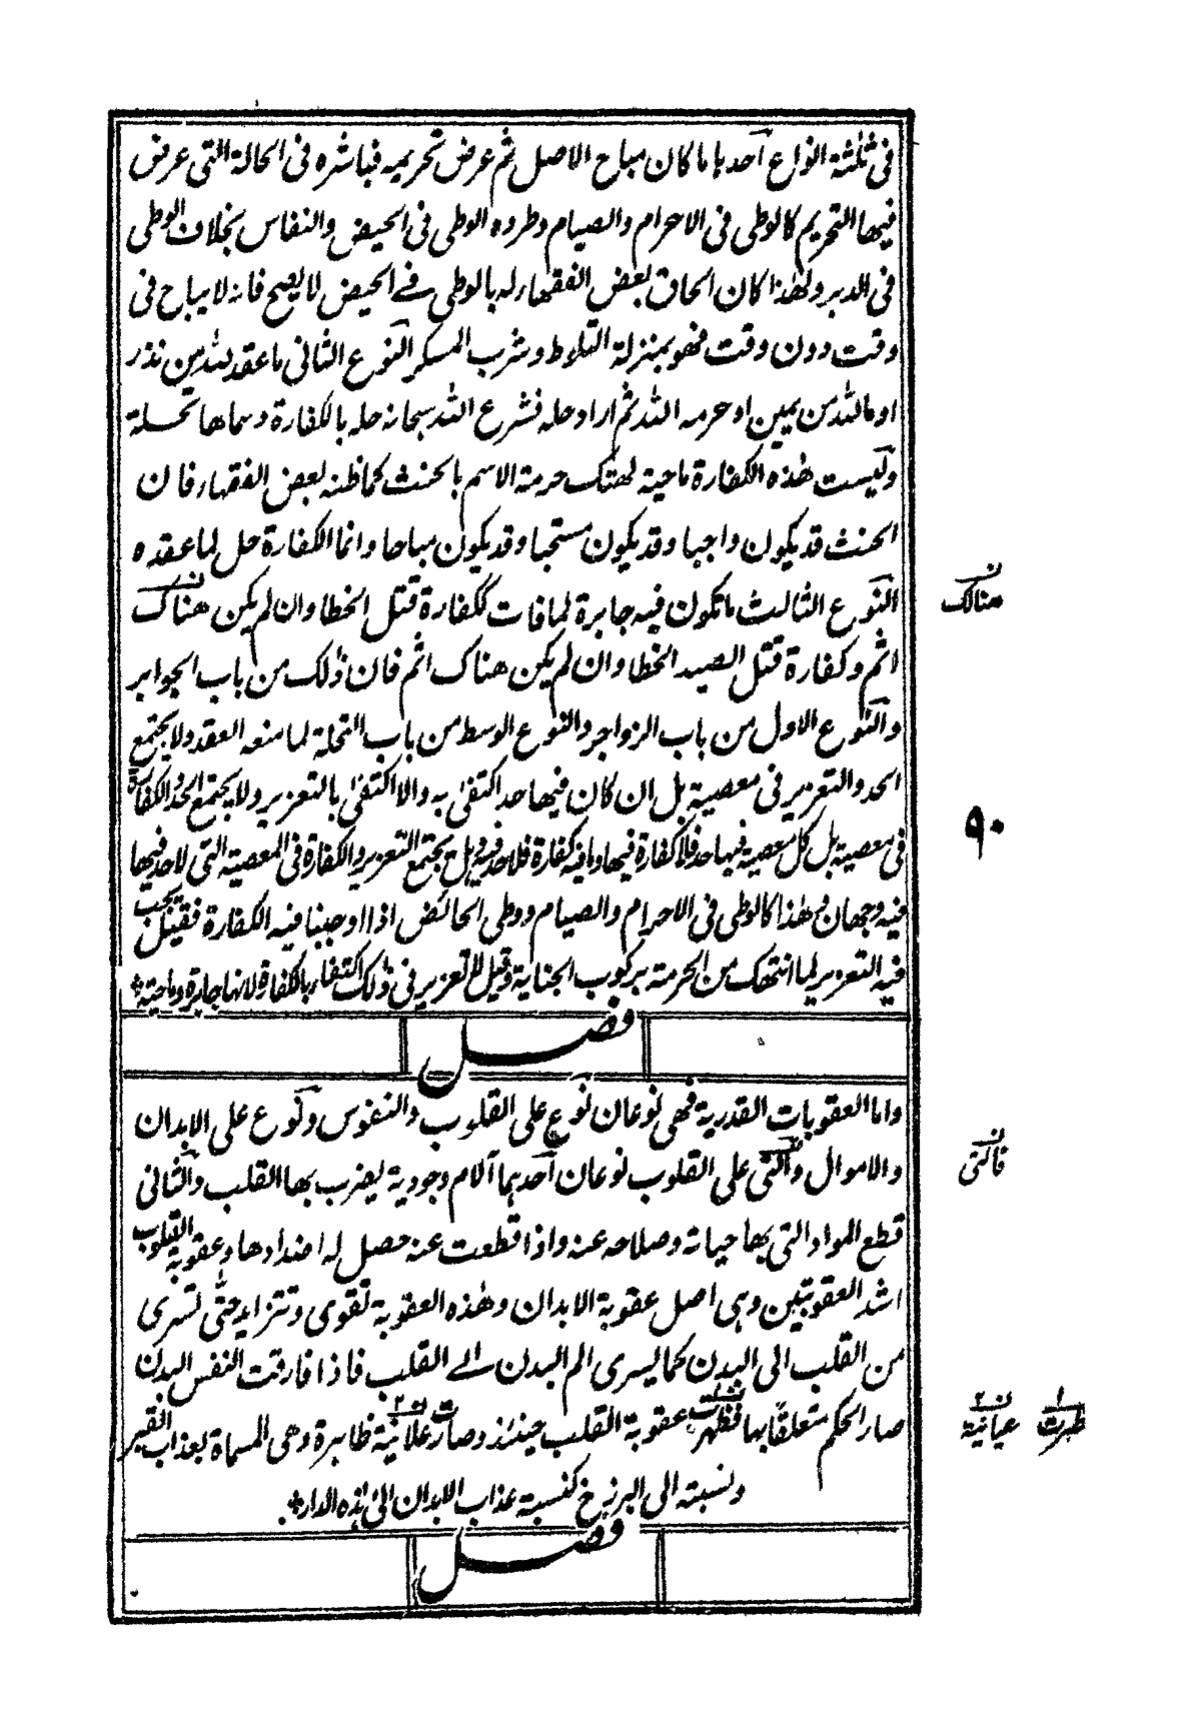 فى ثلثة انواع آحدها ما كان مباح الاصل ثم عرض تحريمه فباشره فى الحالة التى عرض
فيها التحريم كالوطى فى الاحرام والصيام وطرده الوطى فى الحيض والنفاس بخلاف الوطى
فى الدبر ولهذا كان الحاق بعض الفقهاء له بالوطى فى الحيض لا يصح فانه لا يباح فى
وقت دون وقت فهو بمنزلة التلوط وشرب المسكر النوع الثانى ما عقد لله من نذر
او بالله من يمين او حرمه الله ثم اراد حله فشرع الله سبحانه حله بالكفارة وسماها تحلة
وليست هذه الكفارة ماحية لهتك حرمة الاسم بالحنث كما ظنه بعض الفقهاء فان
الحنث قد يكون واجبا وقد يكون مستحبا وقد يكون مباحا وانما الكفارة حل لما عقده
النوع الثالث ما تكون فيه جابرة لما فات ككفارة قتل الخطا وان لم يكن هناك
هنالك
اثم وكفارة قتل الصيد الخطا وان لم يكن هناك اثم فان ذلك من باب الجوابر
والنوع الاول من باب الزواجر والنوع الوسط من باب التحلة لما منعه العقد ولا يجتمع
الحد والتعزير فى معصية بل ان كان فيها حد اكتفى به والا اكتفى بالتعزير ولا يجتمع الحد والكفارة
٩٠
فى معصية بل كل معصية فيها حد فلا كفارة فيها وما فيه كفارة فلا حد فيه وهل يجتمع التعزير والكفارة فى المعصية التى لا حد فيها
فيه وجهان وهذا كالوطى فى الاحرام والصيام ووطى الحائض اذا اوجبنا فيه الكفارة فقيل يجب
فيه التعزير لما انتهك من الحرمة بركوب الجناية وقيل لا تعزير فى ذلك اكتفاء بالكفارة لانها جابرة وماحية
فصل
واما العقوبات القدرية فهى نوعان نوع على القلوب والنفوس ونوع على الابدان
والاموال والتى على القلوب نوعان آحدهما آلام وجودية يضرب بها القلب والثانى
فالتى
قطع المواد التى بها حياته وصلاحه عنه واذا قطعت عنه حصل له اضدادها وعقوبة القلوب
اشد العقوبتين وهى اصل عقوبة الابدان وهذه العقوبة تقوى وتتزايد حتى تسرى
من القلب الى البدن كما يسرى الم البدن الى القلب فاذا فارقت النفس البدن
صار الحكم متعلقا بها فظهرت عقوبة القلب حينئذ وصارت علانية ظاهرة وهى المسماة بعذاب القبر
ظهرت عيانية
ونسبته الى البرزخ كنسبة عذاب الابدان الى هذه الدار
فصل